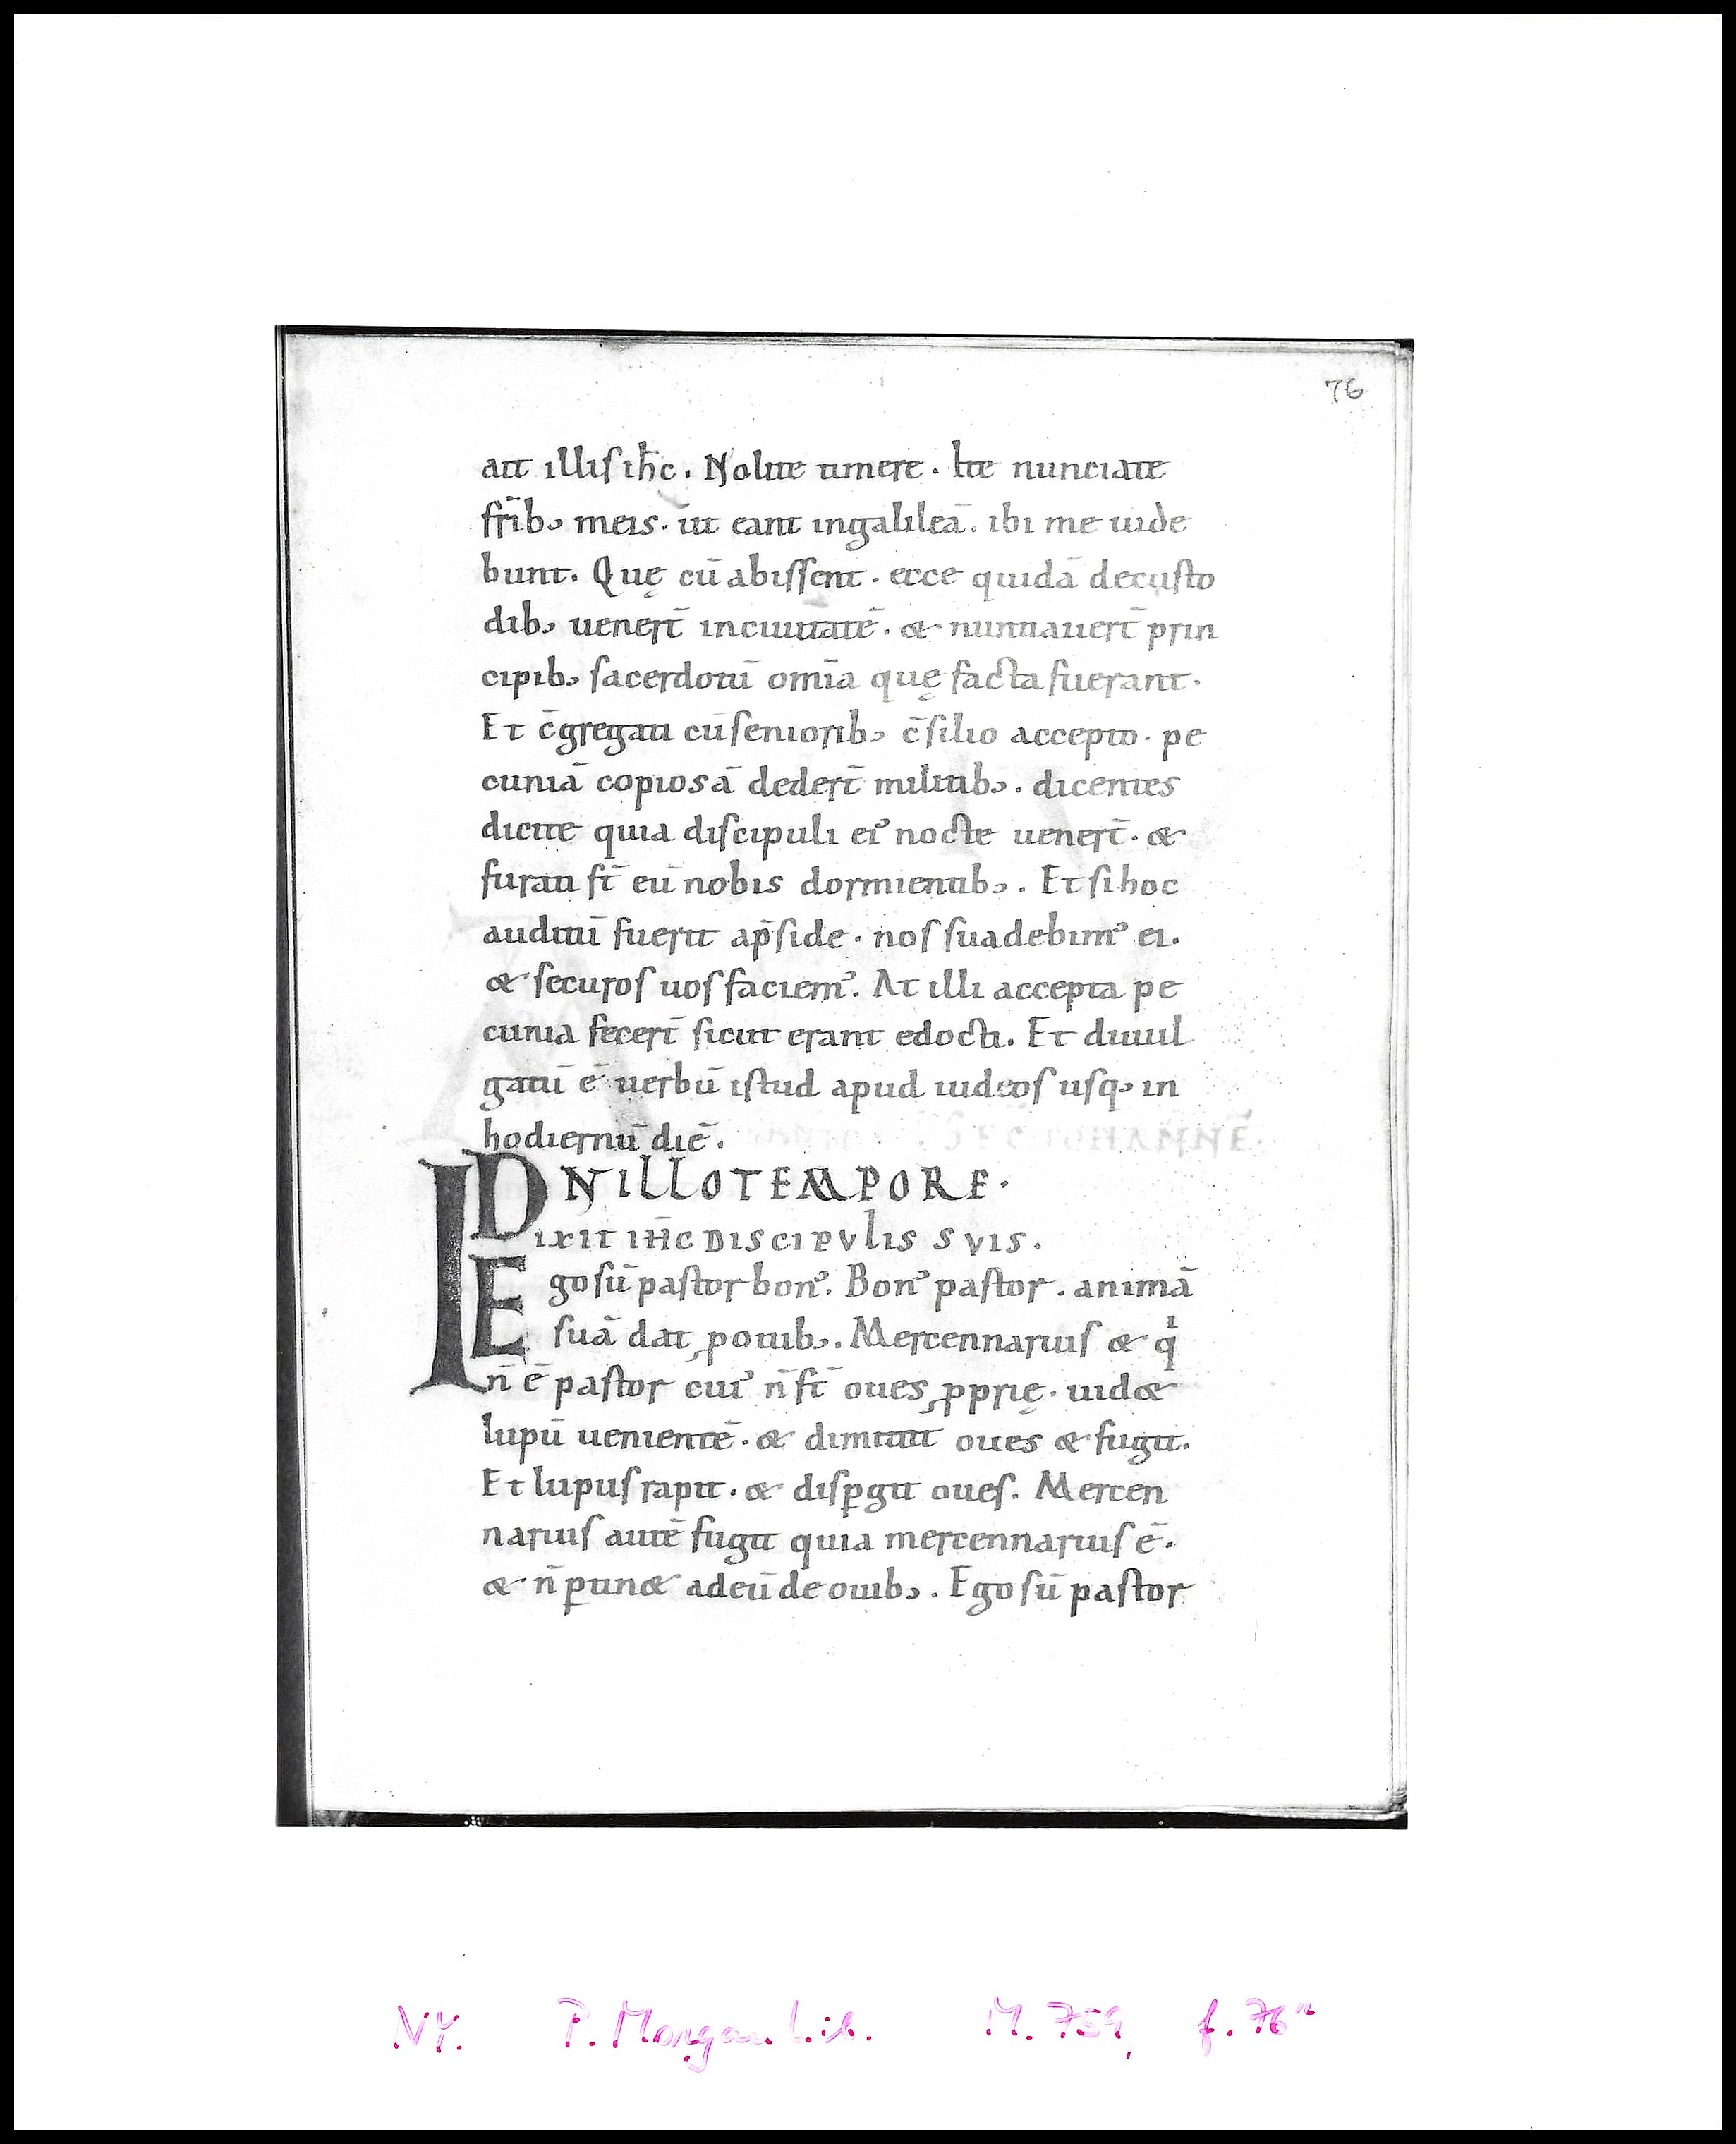 76
ait illis ihc̄. Nolite timere. Ite nunciate
fr̄ibꝫ meis. ut eant ingalileā. ibi me uide
bunt. Quę cū abissent. ecce quidā decusto
dibꝫ uener̄t inciuitatē. & nuntiauer̄t prin
cipibꝫ sacerdotū om̄ia quę facta fuerant.
Et c̄gregati cūsenioribꝫ c̄silio accepto. pe
cuniā copiosā deder̄t militibꝫ. dicentes
dicite quia discipuli ei᾽ nocte uener̄t. &
furati st̄ eū nobis dormientibꝫ. Et si hoc
auditū fuerit ap̄side. nos suadebim᾽ ei.
& securos uos faciem᾽. At illi accepta pe
cunia fecer̄t sicut erant edocti. Et diuul
gatū ē uerbū istud apud iudeos usqꝫ in
hodiernū diē.
IN ILLO TEMPORE.
Dixit ihc̄ DISCIPVLIS SVIS.
Ego sū pastor bon᾽. Bon᾽ pastor. animā
suā dat ꝓ ouibꝫ. Mercennarius & qͥ
n̄ ē pastor cui᾽ n̄ st̄ oues ꝓprię. uid&
lupū uenientē. & dimittit oues & fugit.
Et lupus rapit. & disꝑgit oues. Mercen
narius autē fugit quia mercennarius ē.
& n̄ ꝑtin& adeū de ouibꝫ. Ego sū pastor
NY. P. Morgan Lib. M. 759, f. 76r